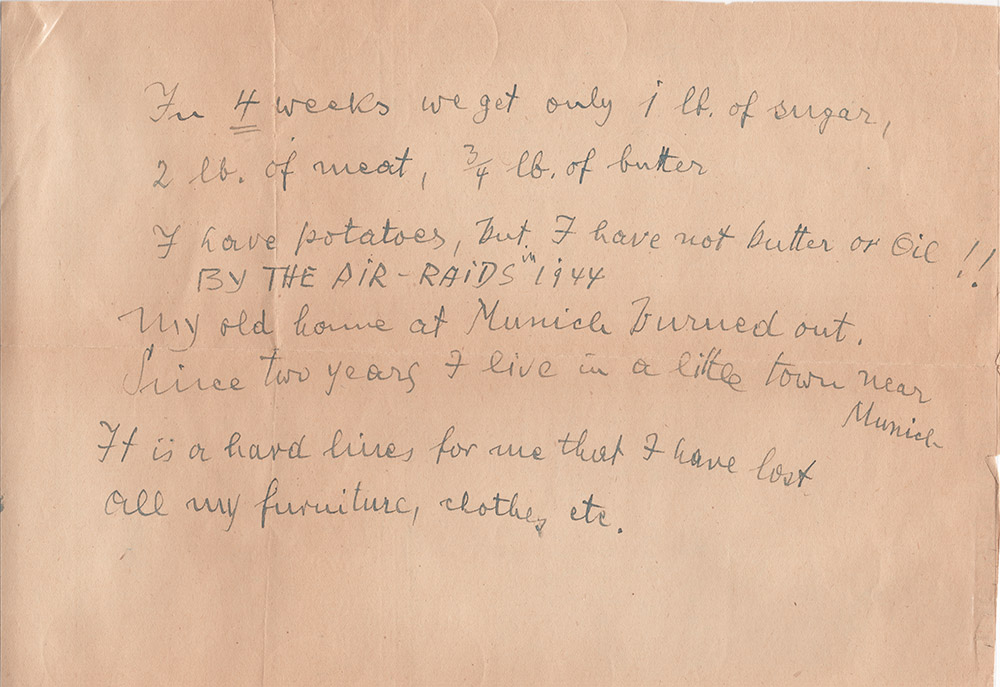 In 4 weeks we get only 1 lb. of sugar,
2 lb. of meat, 3/4 lb. of butter
I have potatoes, but I have not butter or Oil !!
BY THE AIR-RAIDS in 1944
My old home at Munich burned out.
Since two years I live in a little town near
Munich
It is a hard lines for me that I have lost
all my furniture, clothes, etc.